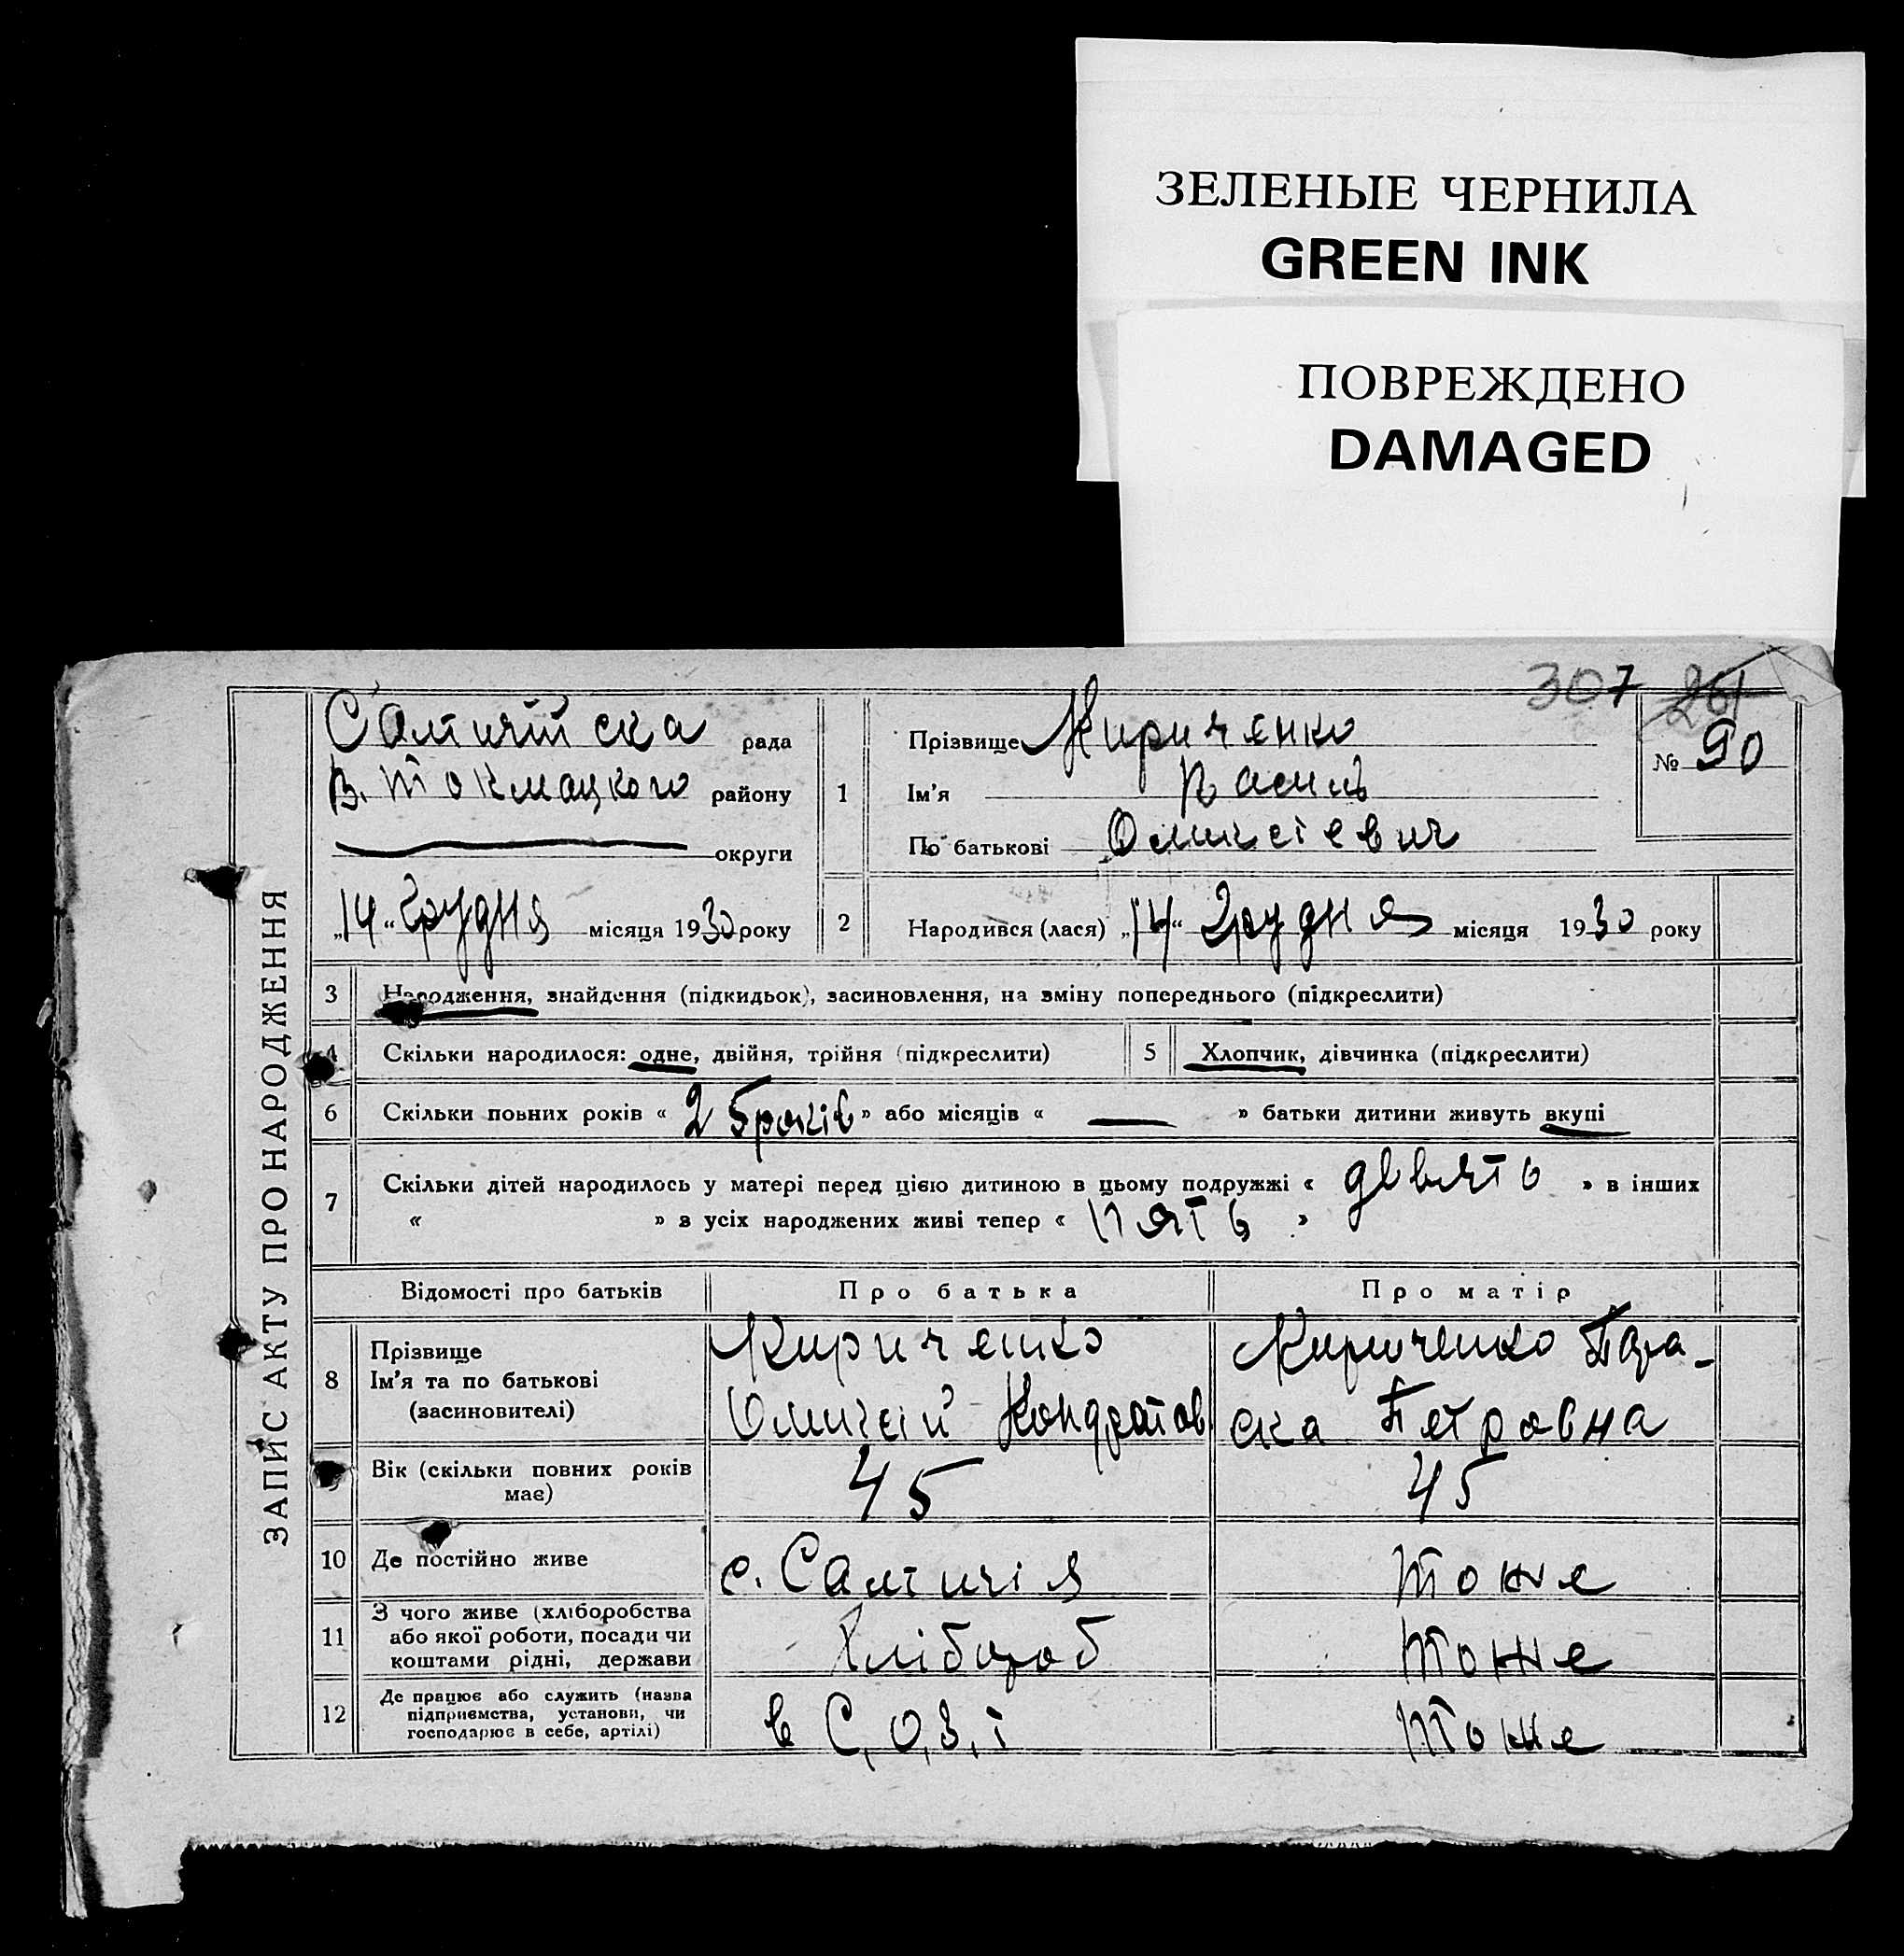 ЗЕЛЕНЫЕ ЧЕРНИЛА
GREEN INK
ПОВРЕЖДЕНО
DAMAGED
307 261
ЗАПИС АКТУ ПРО НАРОДЖЕННЯ
Салтичійска рада
В. Токмацкого району
округи
„14“ грудня місяця 1930 року
1
Прізвище Кириченко
Ім'я Василь
По батькові Оликсієвич
№ 90
2 Народився (лася) „14“ Грудня місяця 1930 року
3 Народження, знайдення (підкидьок), засиновлення, на зміну попереднього (підкреслити)
4 Скільки народилося: одне, двійня, трійня (підкреслити) 5 Хлопчик, дівчинка (підкреслити)
6 Скільки повних років « 25 років » або місяців « — » батьки дитини живуть вкупі
7 Скільки дітей народилось у матері перед цією дитиною в цьому подружжі « девять » в інших
« » з усіх народжених живі тепер « пять »
Відомості про батьків Про батька Про матір
8 Прізвище
Ім'я та по батькові
(засиновителі)
Кириченко
Оликсій Кондратов
Кириченко Пара-
ска Петровна
Вік (скільки повних років
має)
45 45
10 Де постійно живе с. Салтичія тоже
11 З чого живе (хліборобства
або якої роботи, посади чи
коштами рідні, держави
Хлібороб тоже
12 Де працює або служить (назва
підприємства, установи, чи
господарює в себе, артілі)
в С,О,З,і тоже